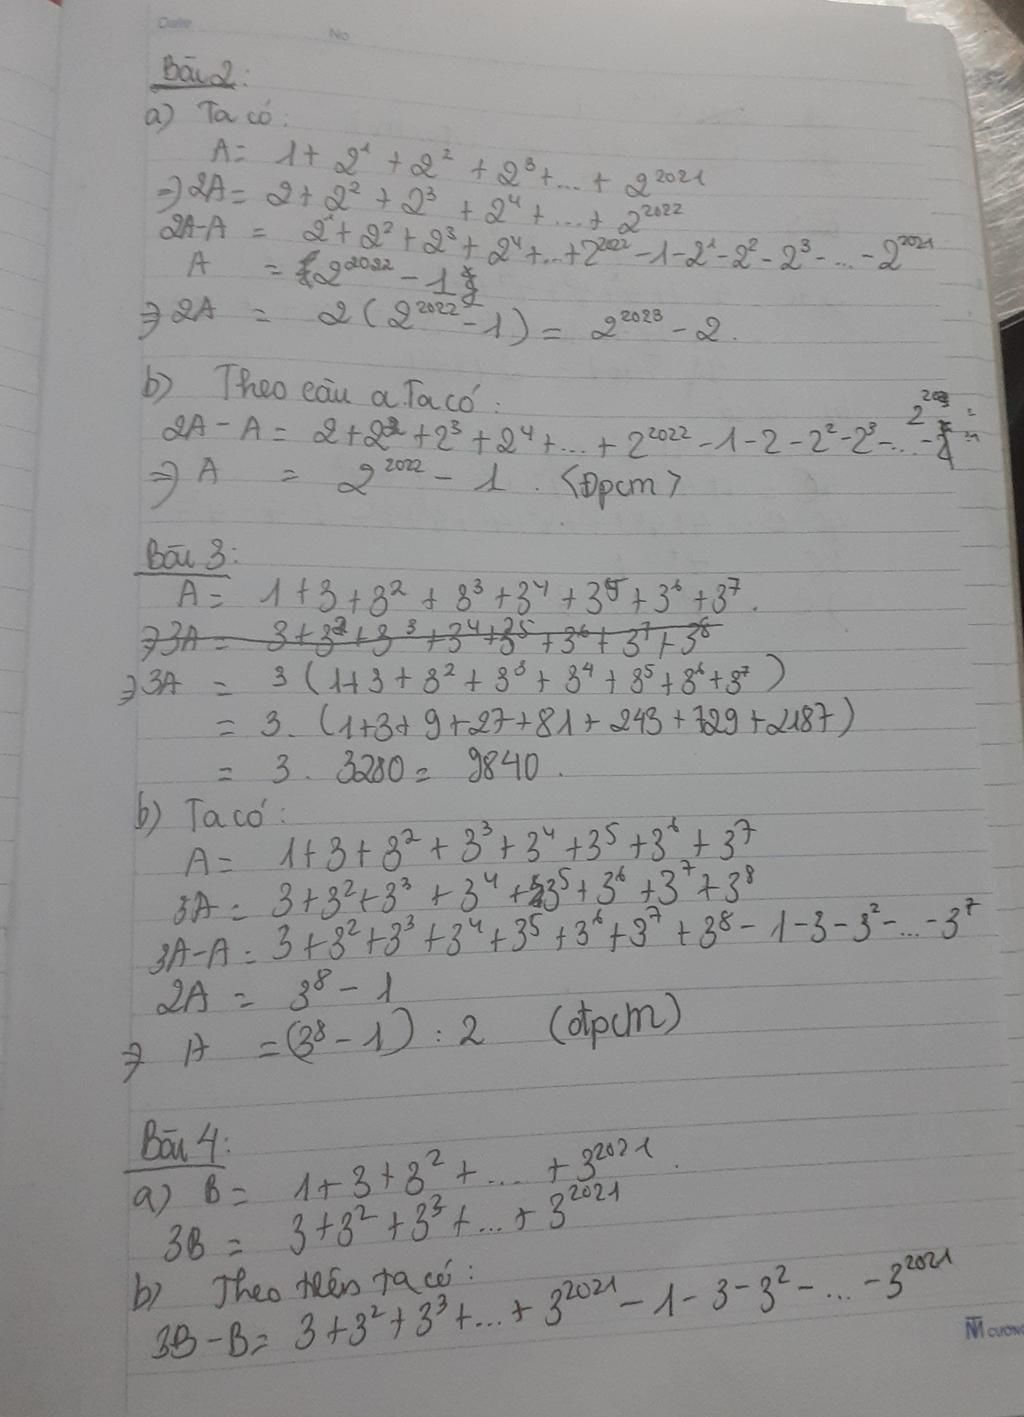 Date
No
Bài 2:
a) Ta có:
A = 1 + 2¹ + 2² + 2³ + ... + 2²⁰²¹
=> 2A = 2 + 2² + 2³ + 2⁴ + ... + 2²⁰²²
2A-A = 2¹ + 2² + 2³ + 2⁴ + ... + 2²⁰²² - 1 - 2¹ - 2² - 2³ - ... - 2²⁰²¹
A = 2²⁰²² - 1
=> 2A = 2 (2²⁰²² - 1) = 2²⁰²³ - 2.
b) Theo câu a. Ta có:
2A - A = 2 + 2² + 2³ + 2⁴ + ... + 2²⁰²² - 1 - 2 - 2² - 2³ - ... -
=> A = 2²⁰²² - 1. <Đpcm>
Bài 3:
A = 1 + 3 + 3² + 3³ + 3⁴ + 3⁵ + 3⁶ + 3⁷.
=> 3A = 3 + 3² + 3³ + 3⁴ + 3⁵ + 3⁶ + 3⁷ + 3⁸
=> 3A = 3 (1 + 3 + 3² + 3³ + 3⁴ + 3⁵ + 3⁶ + 3⁷)
= 3. (1 + 3 + 9 + 27 + 81 + 243 + 729 + 2187)
= 3. 3280 = 9840.
b) Ta có:
A = 1 + 3 + 3² + 3³ + 3⁴ + 3⁵ + 3⁶ + 3⁷
3A = 3 + 3² + 3³ + 3⁴ + 3⁵ + 3⁶ + 3⁷ + 3⁸
3A-A = 3 + 3² + 3³ + 3⁴ + 3⁵ + 3⁶ + 3⁷ + 3⁸ - 1 - 3 - 3² - ... - 3⁷
2A = 3⁸ - 1
=> A = (3⁸ - 1) : 2 (đpcm)
Bài 4:
a) B = 1 + 3 + 3² + ... + 3²⁰²¹.
3B = 3 + 3² + 3³ + ... + 3²⁰²¹
b) Theo trên ta có:
3B - B = 3 + 3² + 3³ + ... + 3²⁰²¹ - 1 - 3 - 3² - ... - 3²⁰²¹